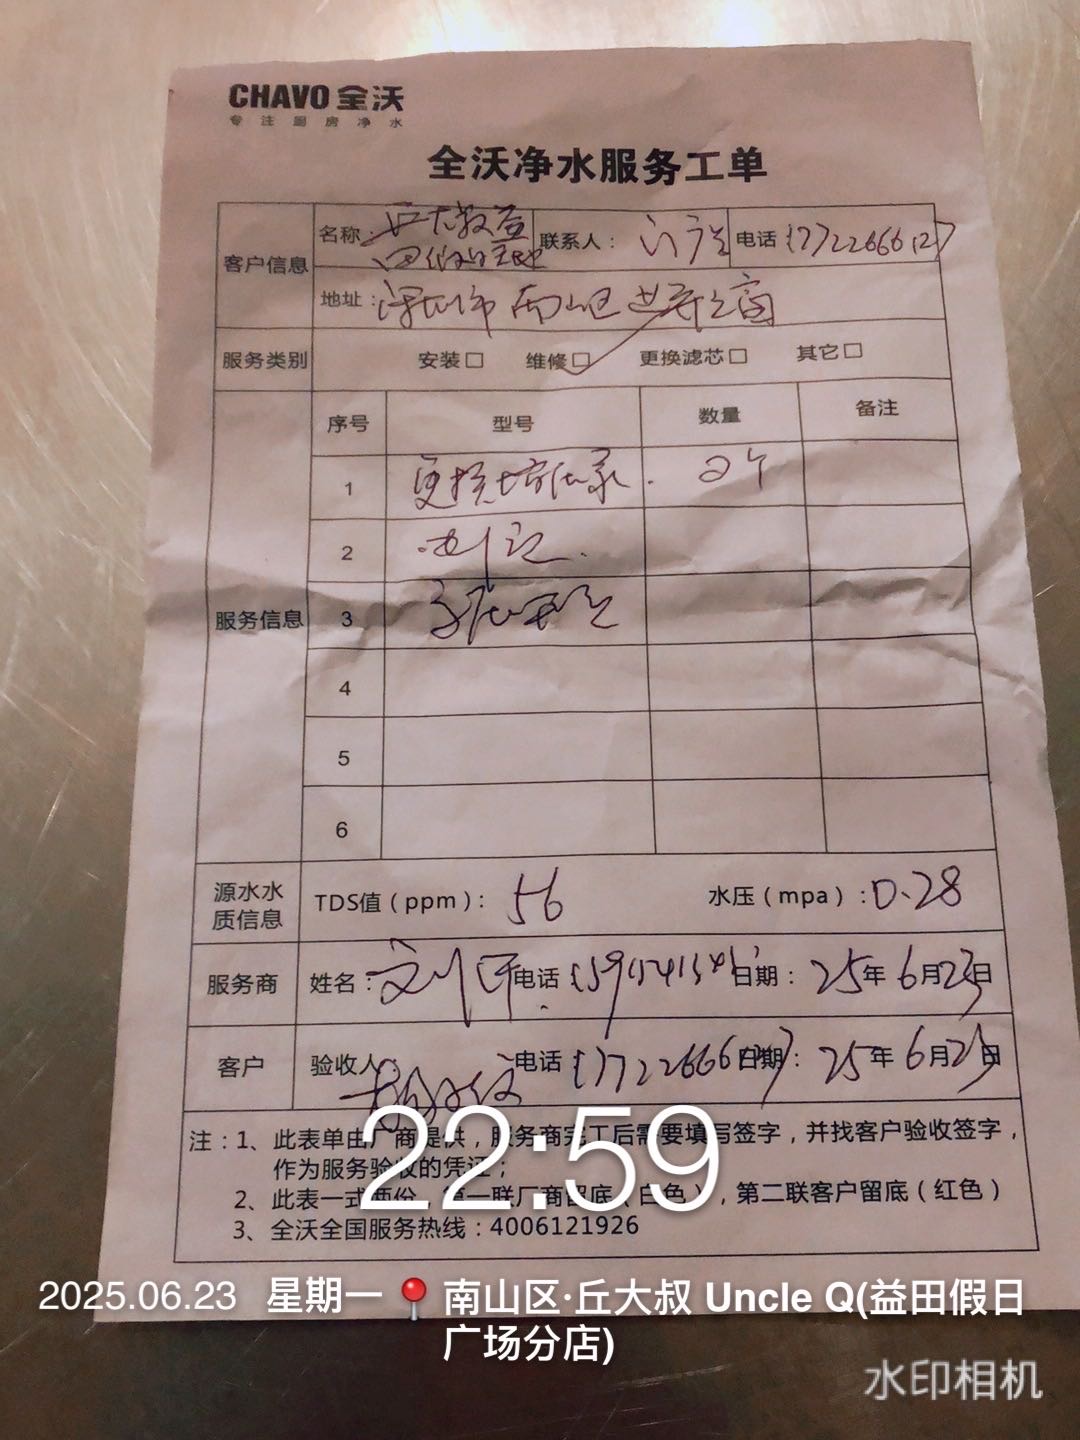 CHAVO 全沃
专注厨房净水
全沃净水服务工单
客户信息 名称：丘大叔益田假日广场 联系人： 电话 17722666127
地址：深圳市南山区世界之窗
服务类别 安装□ 维修□ 更换滤芯□ 其它□
服务信息 序号 型号 数量 备注
1 更换增压泵. 2个
2
3
4
5
6
源水水质信息 TDS值（ppm）：56 水压（mpa）：0.28
服务商 姓名： 电话 日期：25年6月23日
客户 验收人 电话 17722666127 日期：25年6月23日
注：1、此表单由厂商提供，服务商完工后需要填写签字，并找客户验收签字，
作为服务验收的凭证；
2、此表一式两份，第一联厂商留底（白色），第二联客户留底（红色）
3、全沃全国服务热线：4006121926
22:59
2025.06.23 星期一 南山区·丘大叔 Uncle Q(益田假日
广场分店)
水印相机